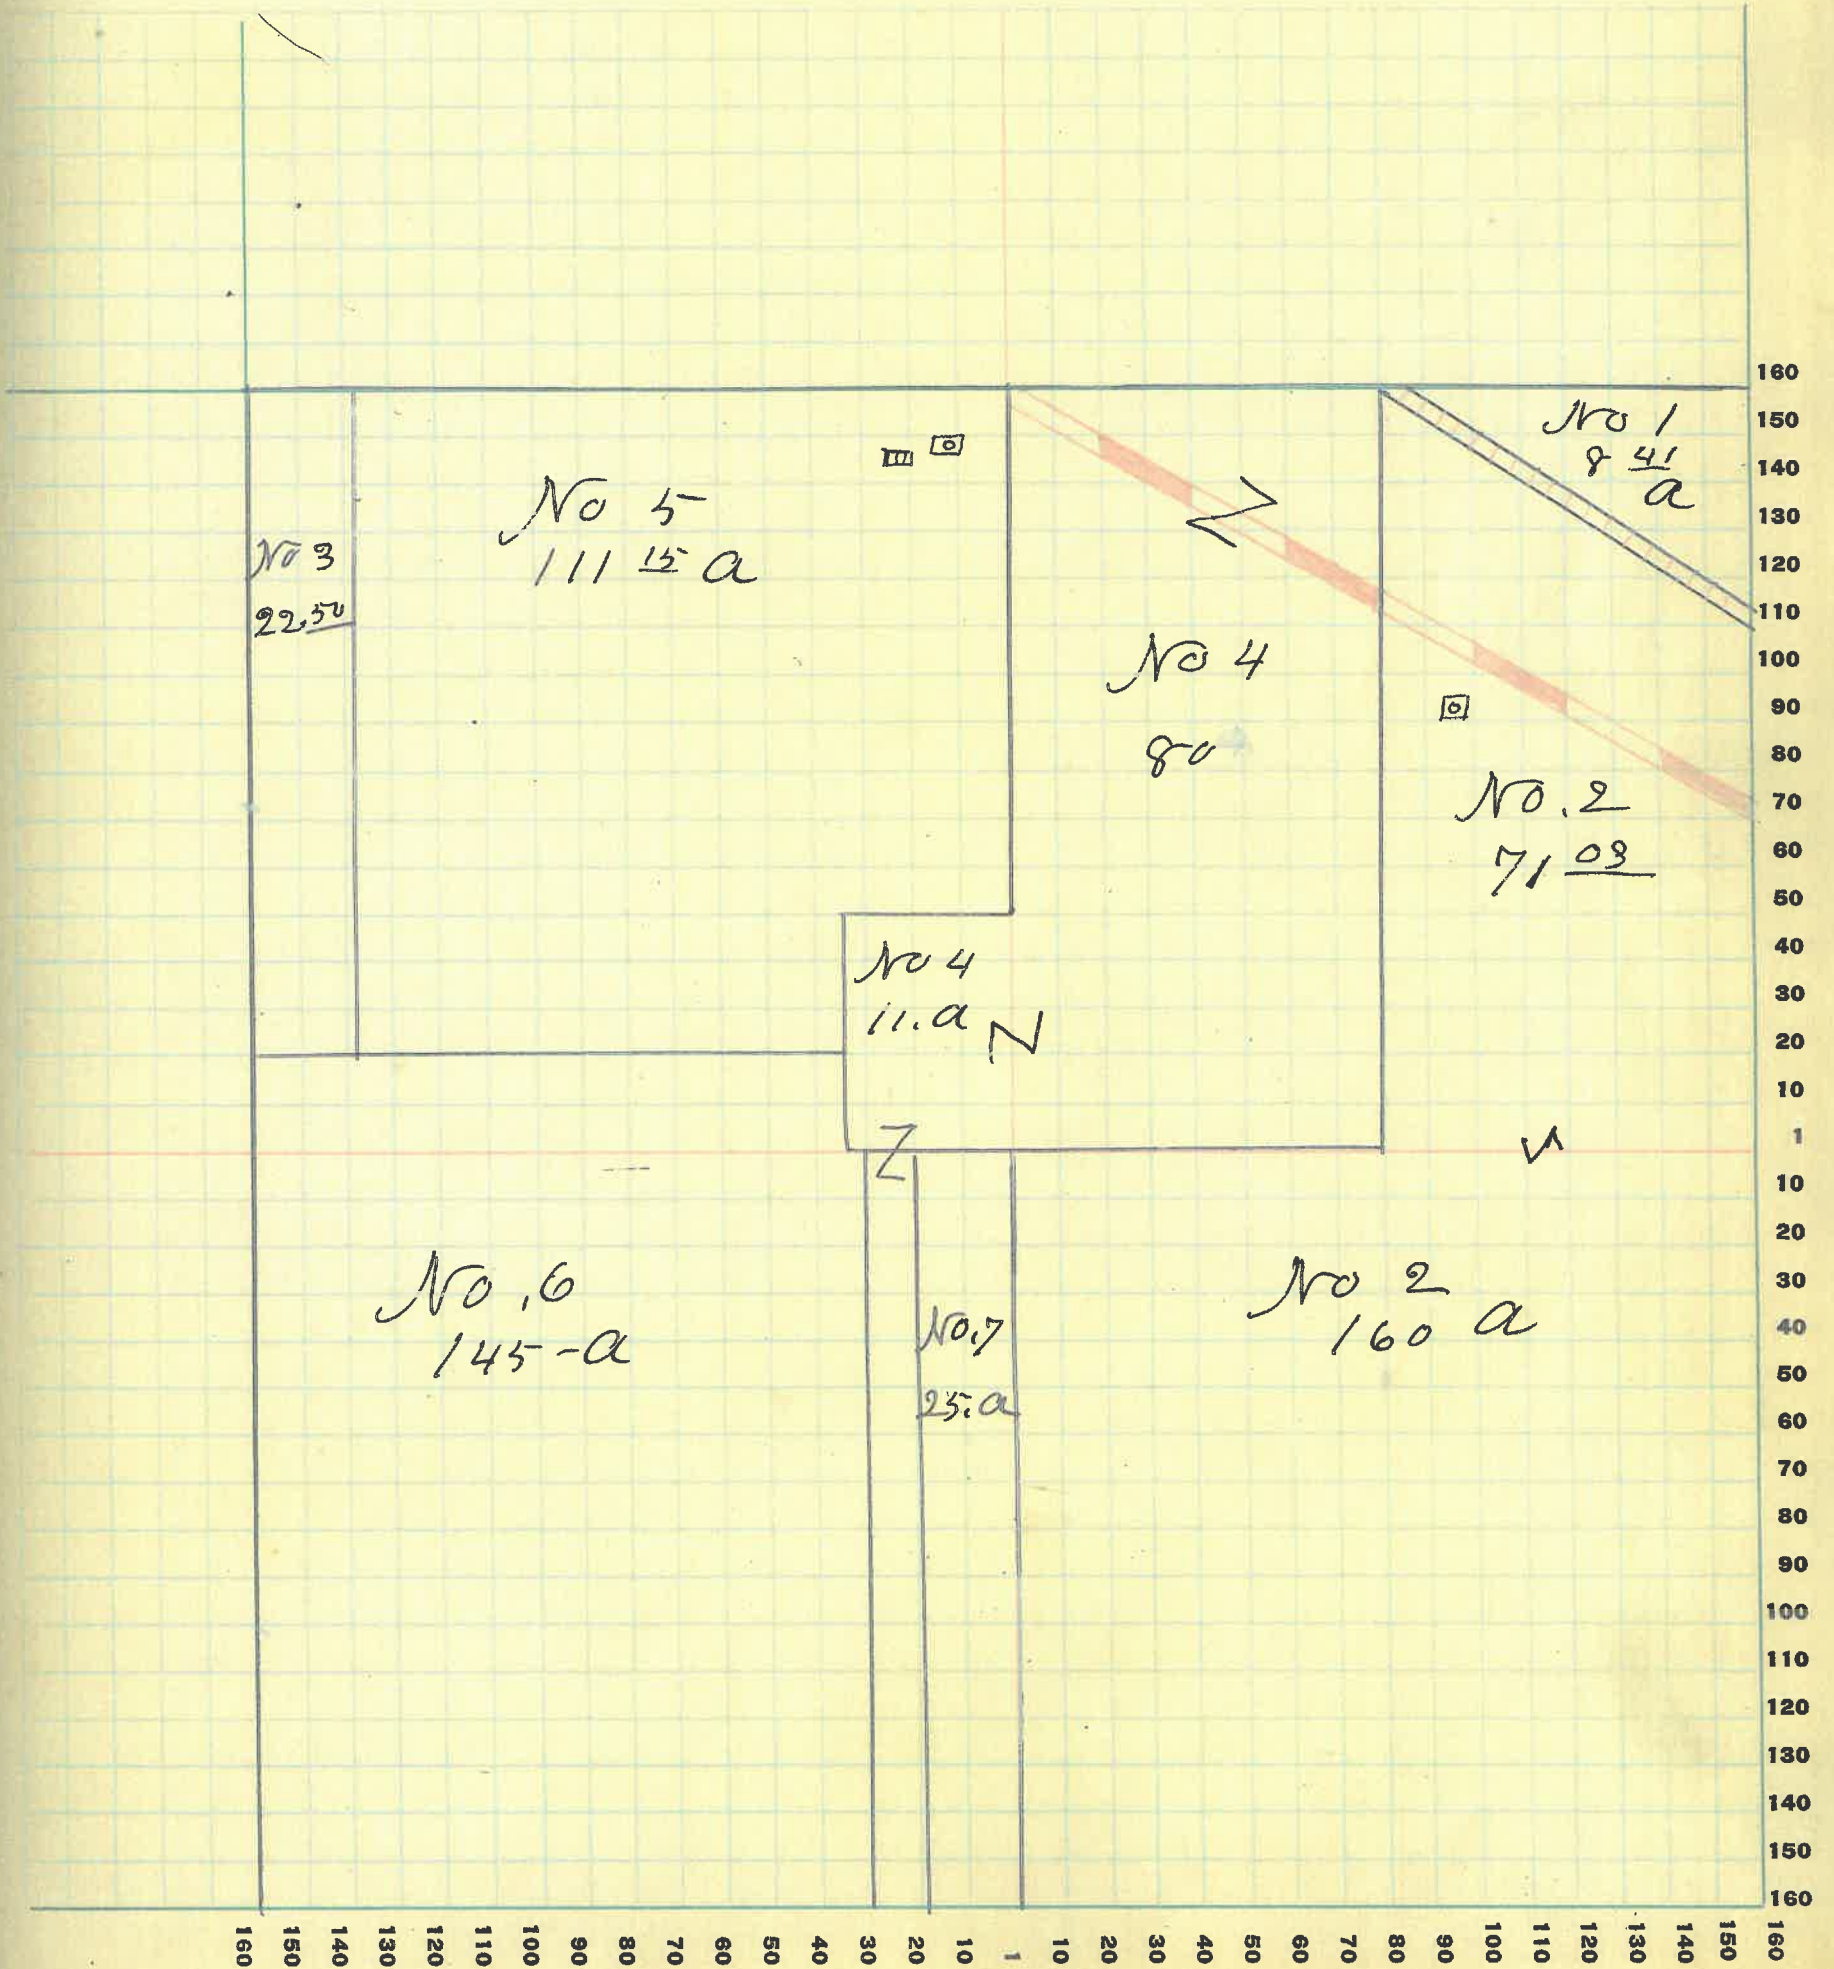 No 1
8 41
a
No 5
111 15 a
No 3
22.50
No 4
80
No. 2
71 03
No 4
11. a
No. 6
145 - a
No. 7
25. a
No 2
160 a
160
150
140
130
120
110
100
90
80
70
60
50
40
30
20
10
1
10
20
30
40
50
60
70
80
90
100
110
120
130
140
150
160
160 150 140 130 120 110 100 90 80 70 60 50 40 30 20 10 1 10 20 30 40 50 60 70 80 90 100 110 120 130 140 150 160